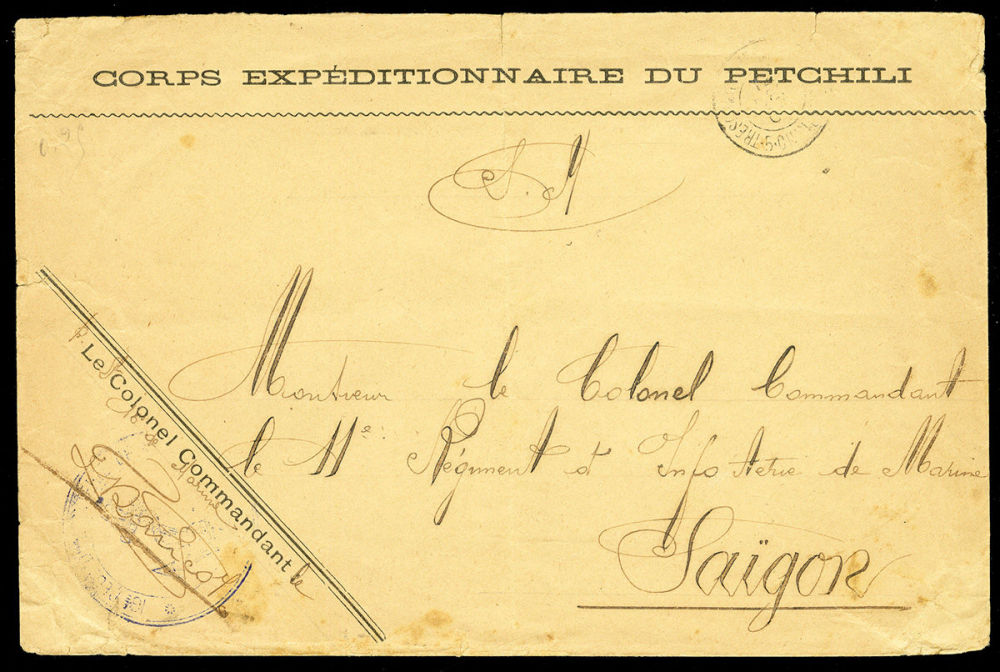 CORPS EXPÉDITIONNAIRE DU PETCHILI
S. M
Monsieur le Colonel Commandant
le 11e Régiment d'Infanterie de Marine
Saïgon
Le Colonel Commandant le
de Marine